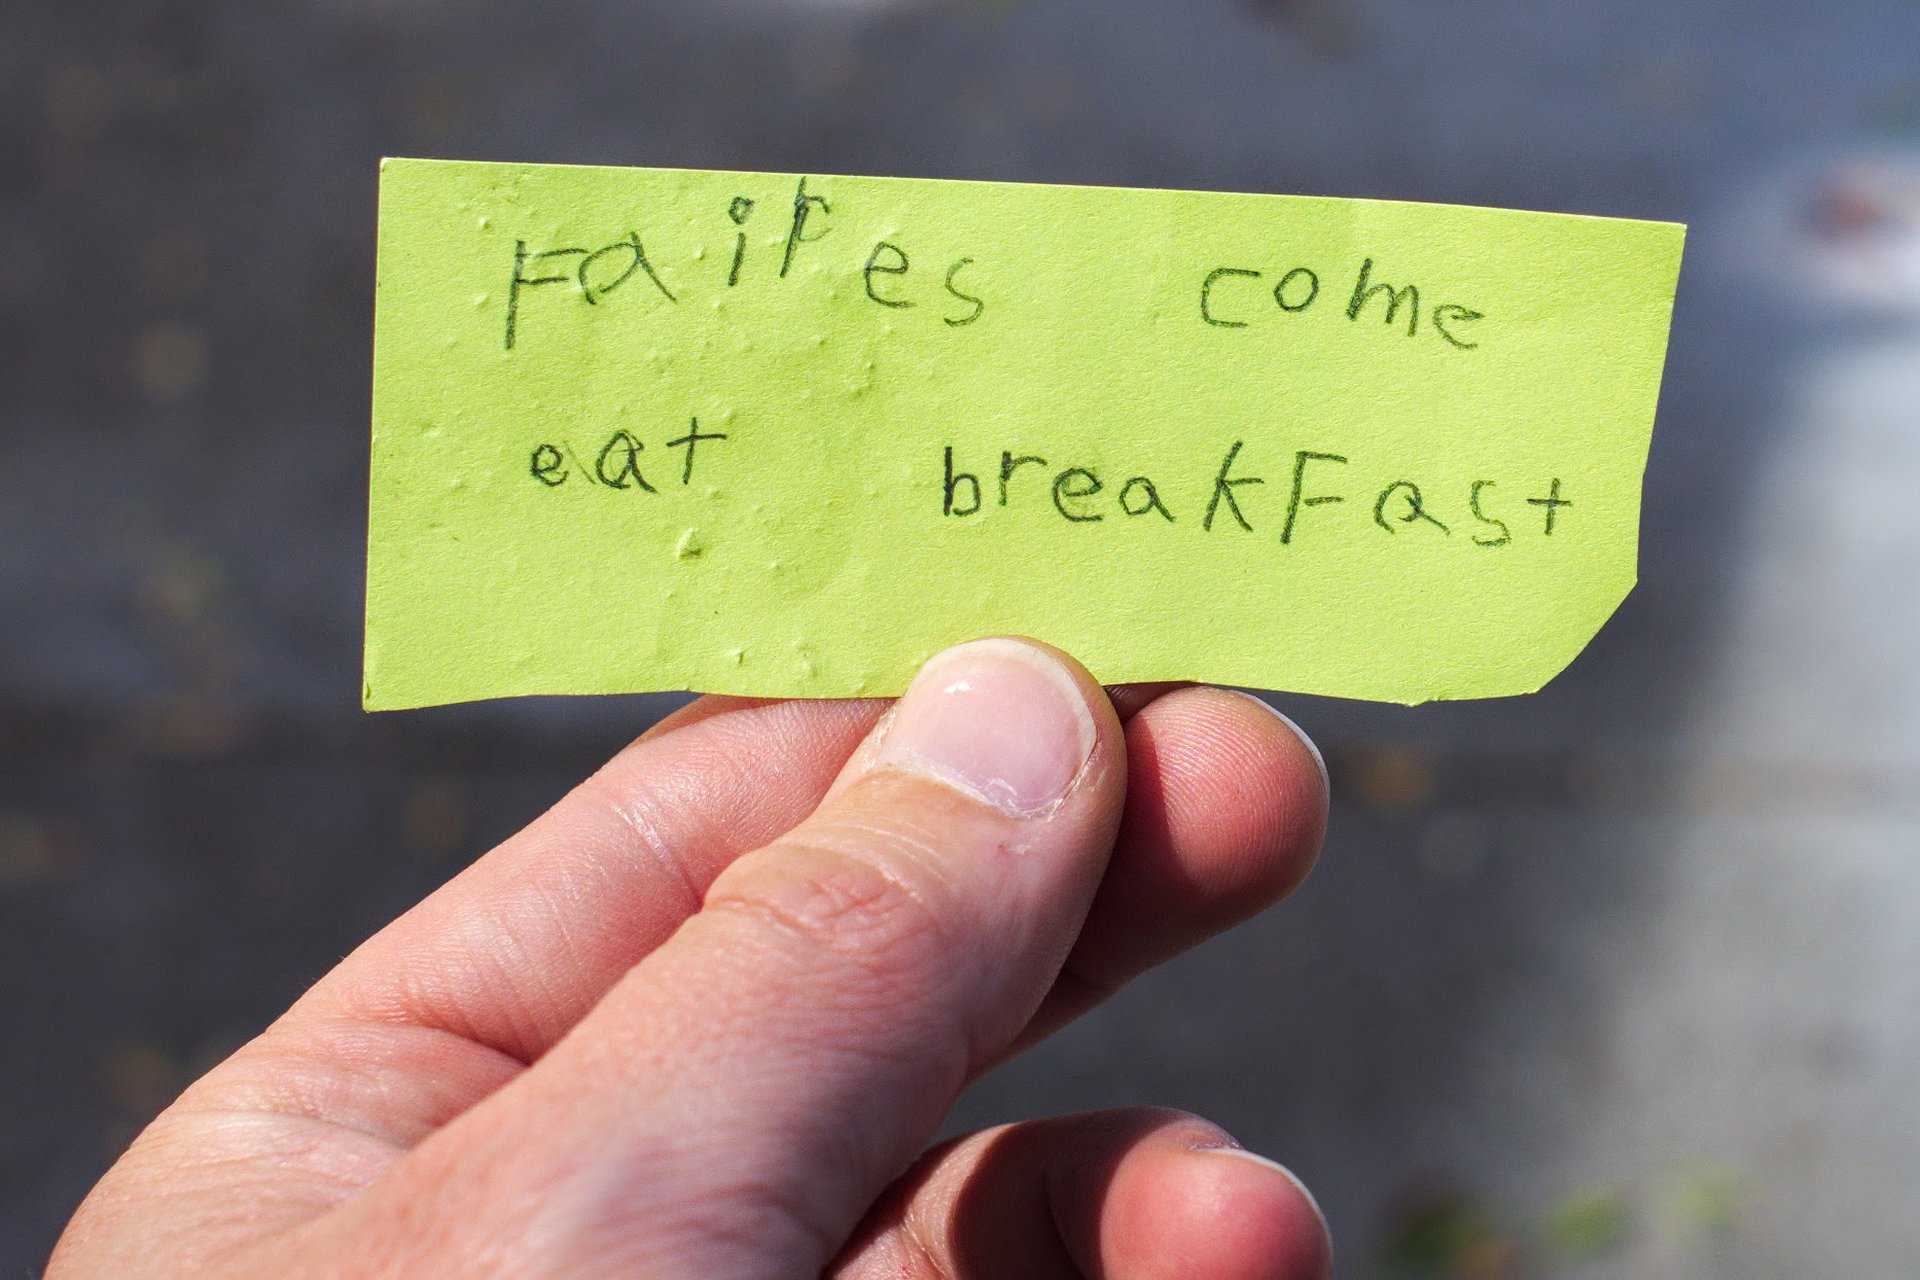 Faires come
eat breakFast